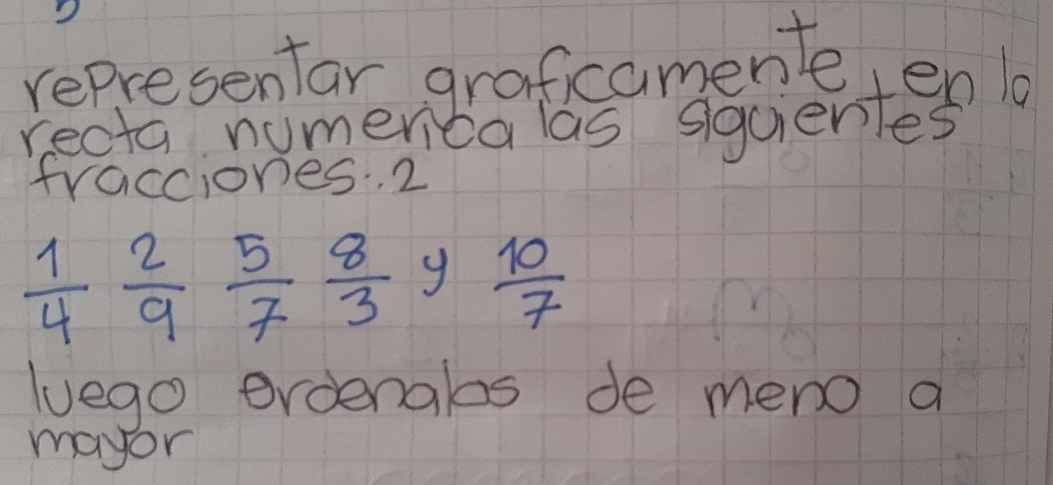 5
representar graficamente, en la
recta numerica las siguientes
fracciones.. 2
1/4 2/9 5/7 8/3 y 10/7
luego ordenalos de meno a
mayor